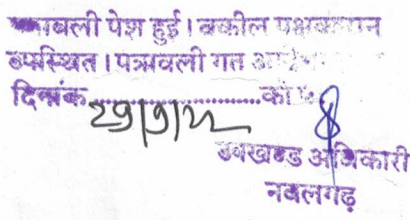 पत्रावली पेश हुई। वकील पक्षकारान
उपस्थित। पत्रावली गत
दिनांक 29/9/22 को
उपखण्ड अधिकारी
नवलगढ़